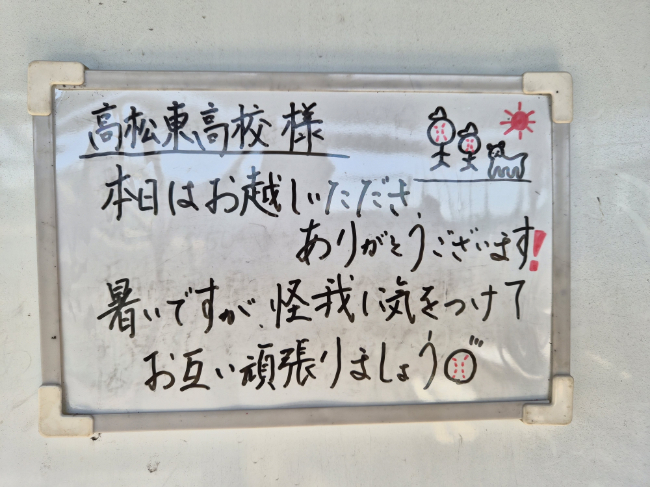 高松東高校 様
本日はお越しいただき、
ありがとうございます!
暑いですが、怪我に気をつけて
お互い頑張りましょう